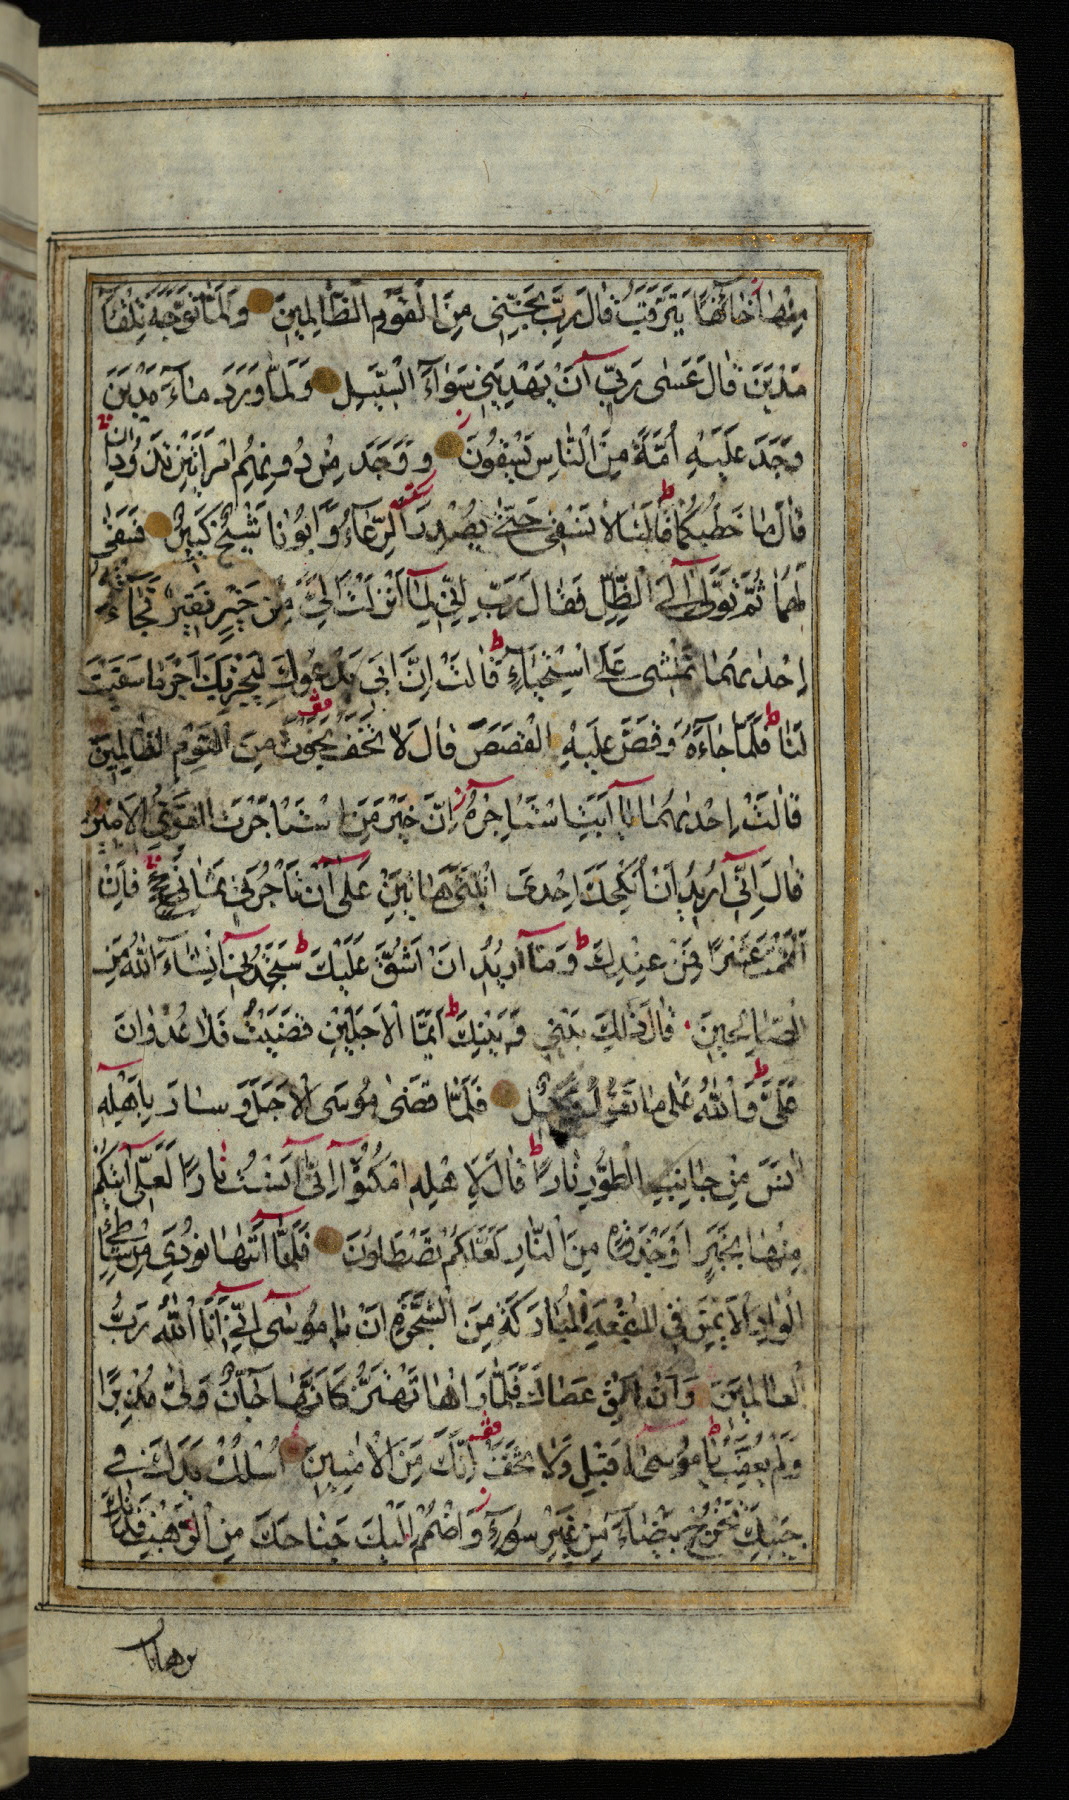 مِنْهَا خَائِفًا يَتَرَقَّبُ قَالَ رَبِّ نَجِّنِي مِنَ الْقَوْمِ الظَّالِمِينَ وَلَمَّا تَوَجَّهَ تِلْقَاءَ
مَدْيَنَ قَالَ عَسَى رَبِّي أَنْ يَهْدِيَنِي سَوَاءَ السَّبِيلِ وَلَمَّا وَرَدَ مَاءَ مَدْيَنَ
وَجَدَ عَلَيْهِ أُمَّةً مِنَ النَّاسِ يَسْقُونَ وَوَجَدَ مِنْ دُونِهِمُ امْرَأَتَيْنِ تَذُودَانِ
قَالَ مَا خَطْبُكُمَا قَالَتَا لَا نَسْقِي حَتَّى يُصْدِرَ الرِّعَاءُ وَأَبُونَا شَيْخٌ كَبِيرٌ فَسَقَى
لَهُمَا ثُمَّ تَوَلَّى إِلَى الظِّلِّ فَقَالَ رَبِّ إِنِّي لِمَا أَنْزَلْتَ إِلَيَّ مِنْ خَيْرٍ فَقِيرٌ فَجَاءَتْهُ
إِحْدَاهُمَا تَمْشِي عَلَى اسْتِحْيَاءٍ قَالَتْ إِنَّ أَبِي يَدْعُوكَ لِيَجْزِيَكَ أَجْرَ مَا سَقَيْتَ
لَنَا فَلَمَّا جَاءَهُ وَقَصَّ عَلَيْهِ الْقَصَصَ قَالَ لَا تَخَفْ نَجَوْتَ مِنَ الْقَوْمِ الظَّالِمِينَ
قَالَتْ إِحْدَاهُمَا يَا أَبَتِ اسْتَأْجِرْهُ إِنَّ خَيْرَ مَنِ اسْتَأْجَرْتَ الْقَوِيُّ الْأَمِينُ
قَالَ إِنِّي أُرِيدُ أَنْ أُنْكِحَكَ إِحْدَى ابْنَتَيَّ هَاتَيْنِ عَلَى أَنْ تَأْجُرَنِي ثَمَانِيَ حِجَجٍ فَإِنْ
أَتْمَمْتَ عَشْرًا فَمِنْ عِنْدِكَ وَمَا أُرِيدُ أَنْ أَشُقَّ عَلَيْكَ سَتَجِدُنِي إِنْ شَاءَ اللَّهُ مِنَ
الصَّالِحِينَ قَالَ ذَلِكَ بَيْنِي وَبَيْنَكَ أَيَّمَا الْأَجَلَيْنِ قَضَيْتُ فَلَا عُدْوَانَ
عَلَيَّ وَاللَّهُ عَلَى مَا نَقُولُ وَكِيلٌ فَلَمَّا قَضَى مُوسَى الْأَجَلَ وَسَارَ بِأَهْلِهِ
آنَسَ مِنْ جَانِبِ الطُّورِ نَارًا قَالَ لِأَهْلِهِ امْكُثُوا إِنِّي آنَسْتُ نَارًا لَعَلِّي آتِيكُمْ
مِنْهَا بِخَبَرٍ أَوْ جَذْوَةٍ مِنَ النَّارِ لَعَلَّكُمْ تَصْطَلُونَ فَلَمَّا أَتَاهَا نُودِيَ مِنْ شَاطِئِ
الْوَادِ الْأَيْمَنِ فِي الْبُقْعَةِ الْمُبَارَكَةِ مِنَ الشَّجَرَةِ أَنْ يَا مُوسَى إِنِّي أَنَا اللَّهُ رَبُّ
الْعَالَمِينَ وَأَنْ أَلْقِ عَصَاكَ فَلَمَّا رَآهَا تَهْتَزُّ كَأَنَّهَا جَانٌّ وَلَّى مُدْبِرًا
وَلَمْ يُعَقِّبْ يَا مُوسَى أَقْبِلْ وَلَا تَخَفْ إِنَّكَ مِنَ الْآمِنِينَ اُسْلُكْ يَدَكَ فِي
جَيْبِكَ تَخْرُجْ بَيْضَاءَ مِنْ غَيْرِ سُوءٍ وَاضْمُمْ إِلَيْكَ جَنَاحَكَ مِنَ الرَّهْبِ فَذَانِكَ
برهانان